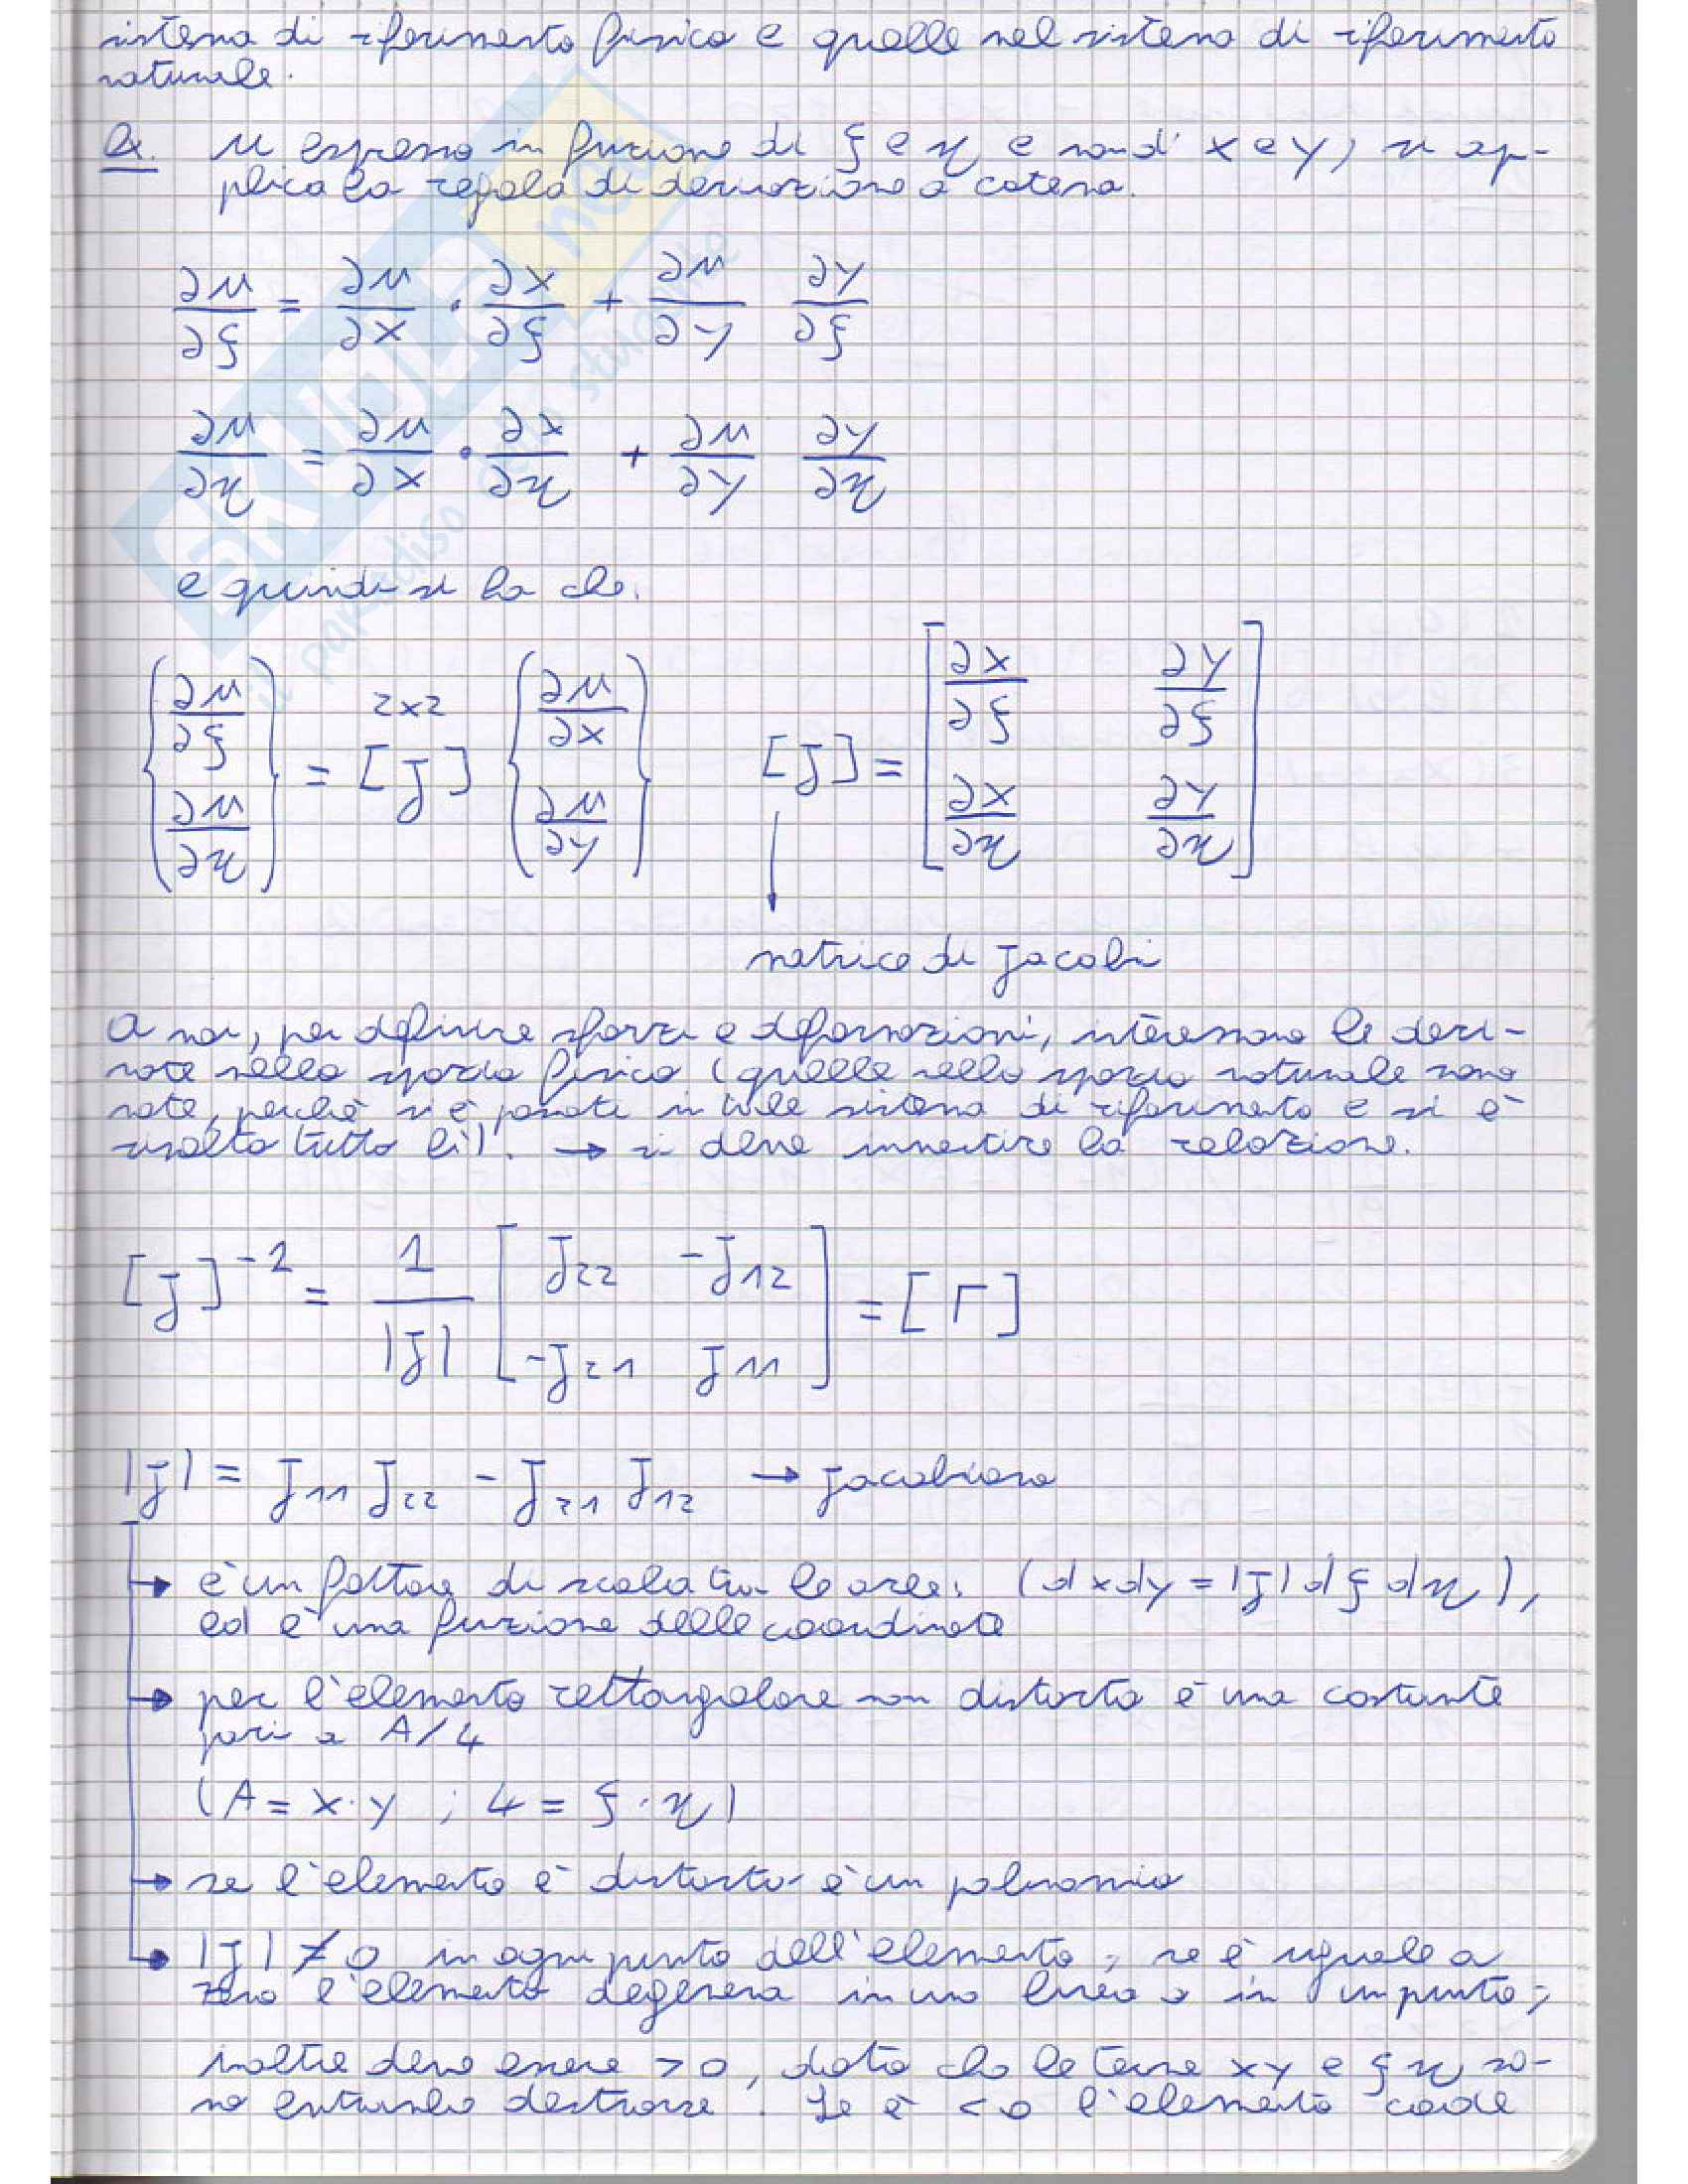 sistema di riferimento fisico e quelle nel sistema di riferimento
naturale.
Ex. u espresso in funzione di ξ e η e non di x e y, si ap-
plica la regola di derivazione a catena.
∂u/∂ξ = ∂u/∂x · ∂x/∂ξ + ∂u/∂y ∂y/∂ξ
∂u/∂η = ∂u/∂x · ∂x/∂η + ∂u/∂y ∂y/∂η
e quindi si ha che:
{∂u/∂ξ ; ∂u/∂η} = [J] 2x2 {∂u/∂x ; ∂u/∂y} [J] = [∂x/∂ξ ∂y/∂ξ ; ∂x/∂η ∂y/∂η]
matrice di Jacobi
A noi, per definire sforzi e deformazioni, interessano le deri-
vate nello spazio fisico (quelle nello spazio naturale sono
note, perchè si è passati in tale sistema di riferimento e si è
risolto tutto lì). → si deve invertire la relazione.
[J]⁻¹ = 1/|J| [J22 -J12 ; -J21 J11] = [Γ]
|J| = J11 J22 - J21 J12 → Jacobiano
→ è un fattore di scala tra le aree. (dxdy = |J| dξ dη),
ed è una funzione delle coordinate
→ per l'elemento rettangolare non distorto è una costante
pari a A/4
(A = x·y ; 4 = ξ·η)
→ se l'elemento è distorto è un polinomio
→ |J| ≠ 0 in ogni punto dell'elemento; se è uguale a
zero l'elemento degenera in una linea o in un punto;
inoltre deve essere >0, dato che le terne xy e ξη so-
no entrambe destrorse. Se è <0 l'elemento cade
SKUOLA.net
il paradiso dello studente